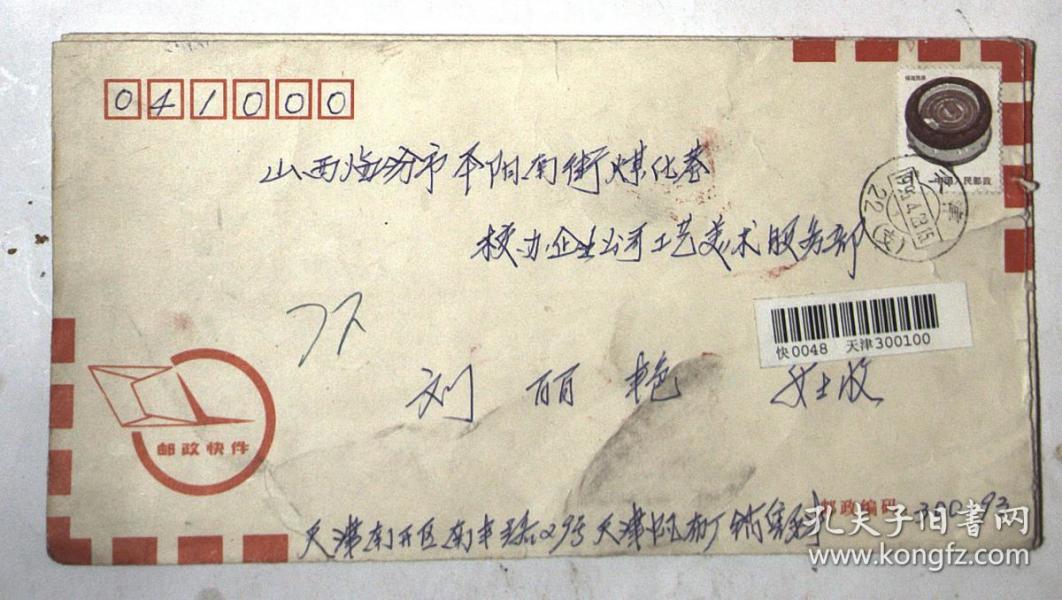 041000
福建民居
中国人民邮政
山西临汾市平阳南街煤化巷
天津
22 (支)
校办企业公司工艺美术服务部
快0048 天津300100
刘丽艳 女士收
邮政快件
邮政编码 300193
天津南开区南丰路29号天津帆布厂销售科
孔夫子旧书网
www.kongfz.com